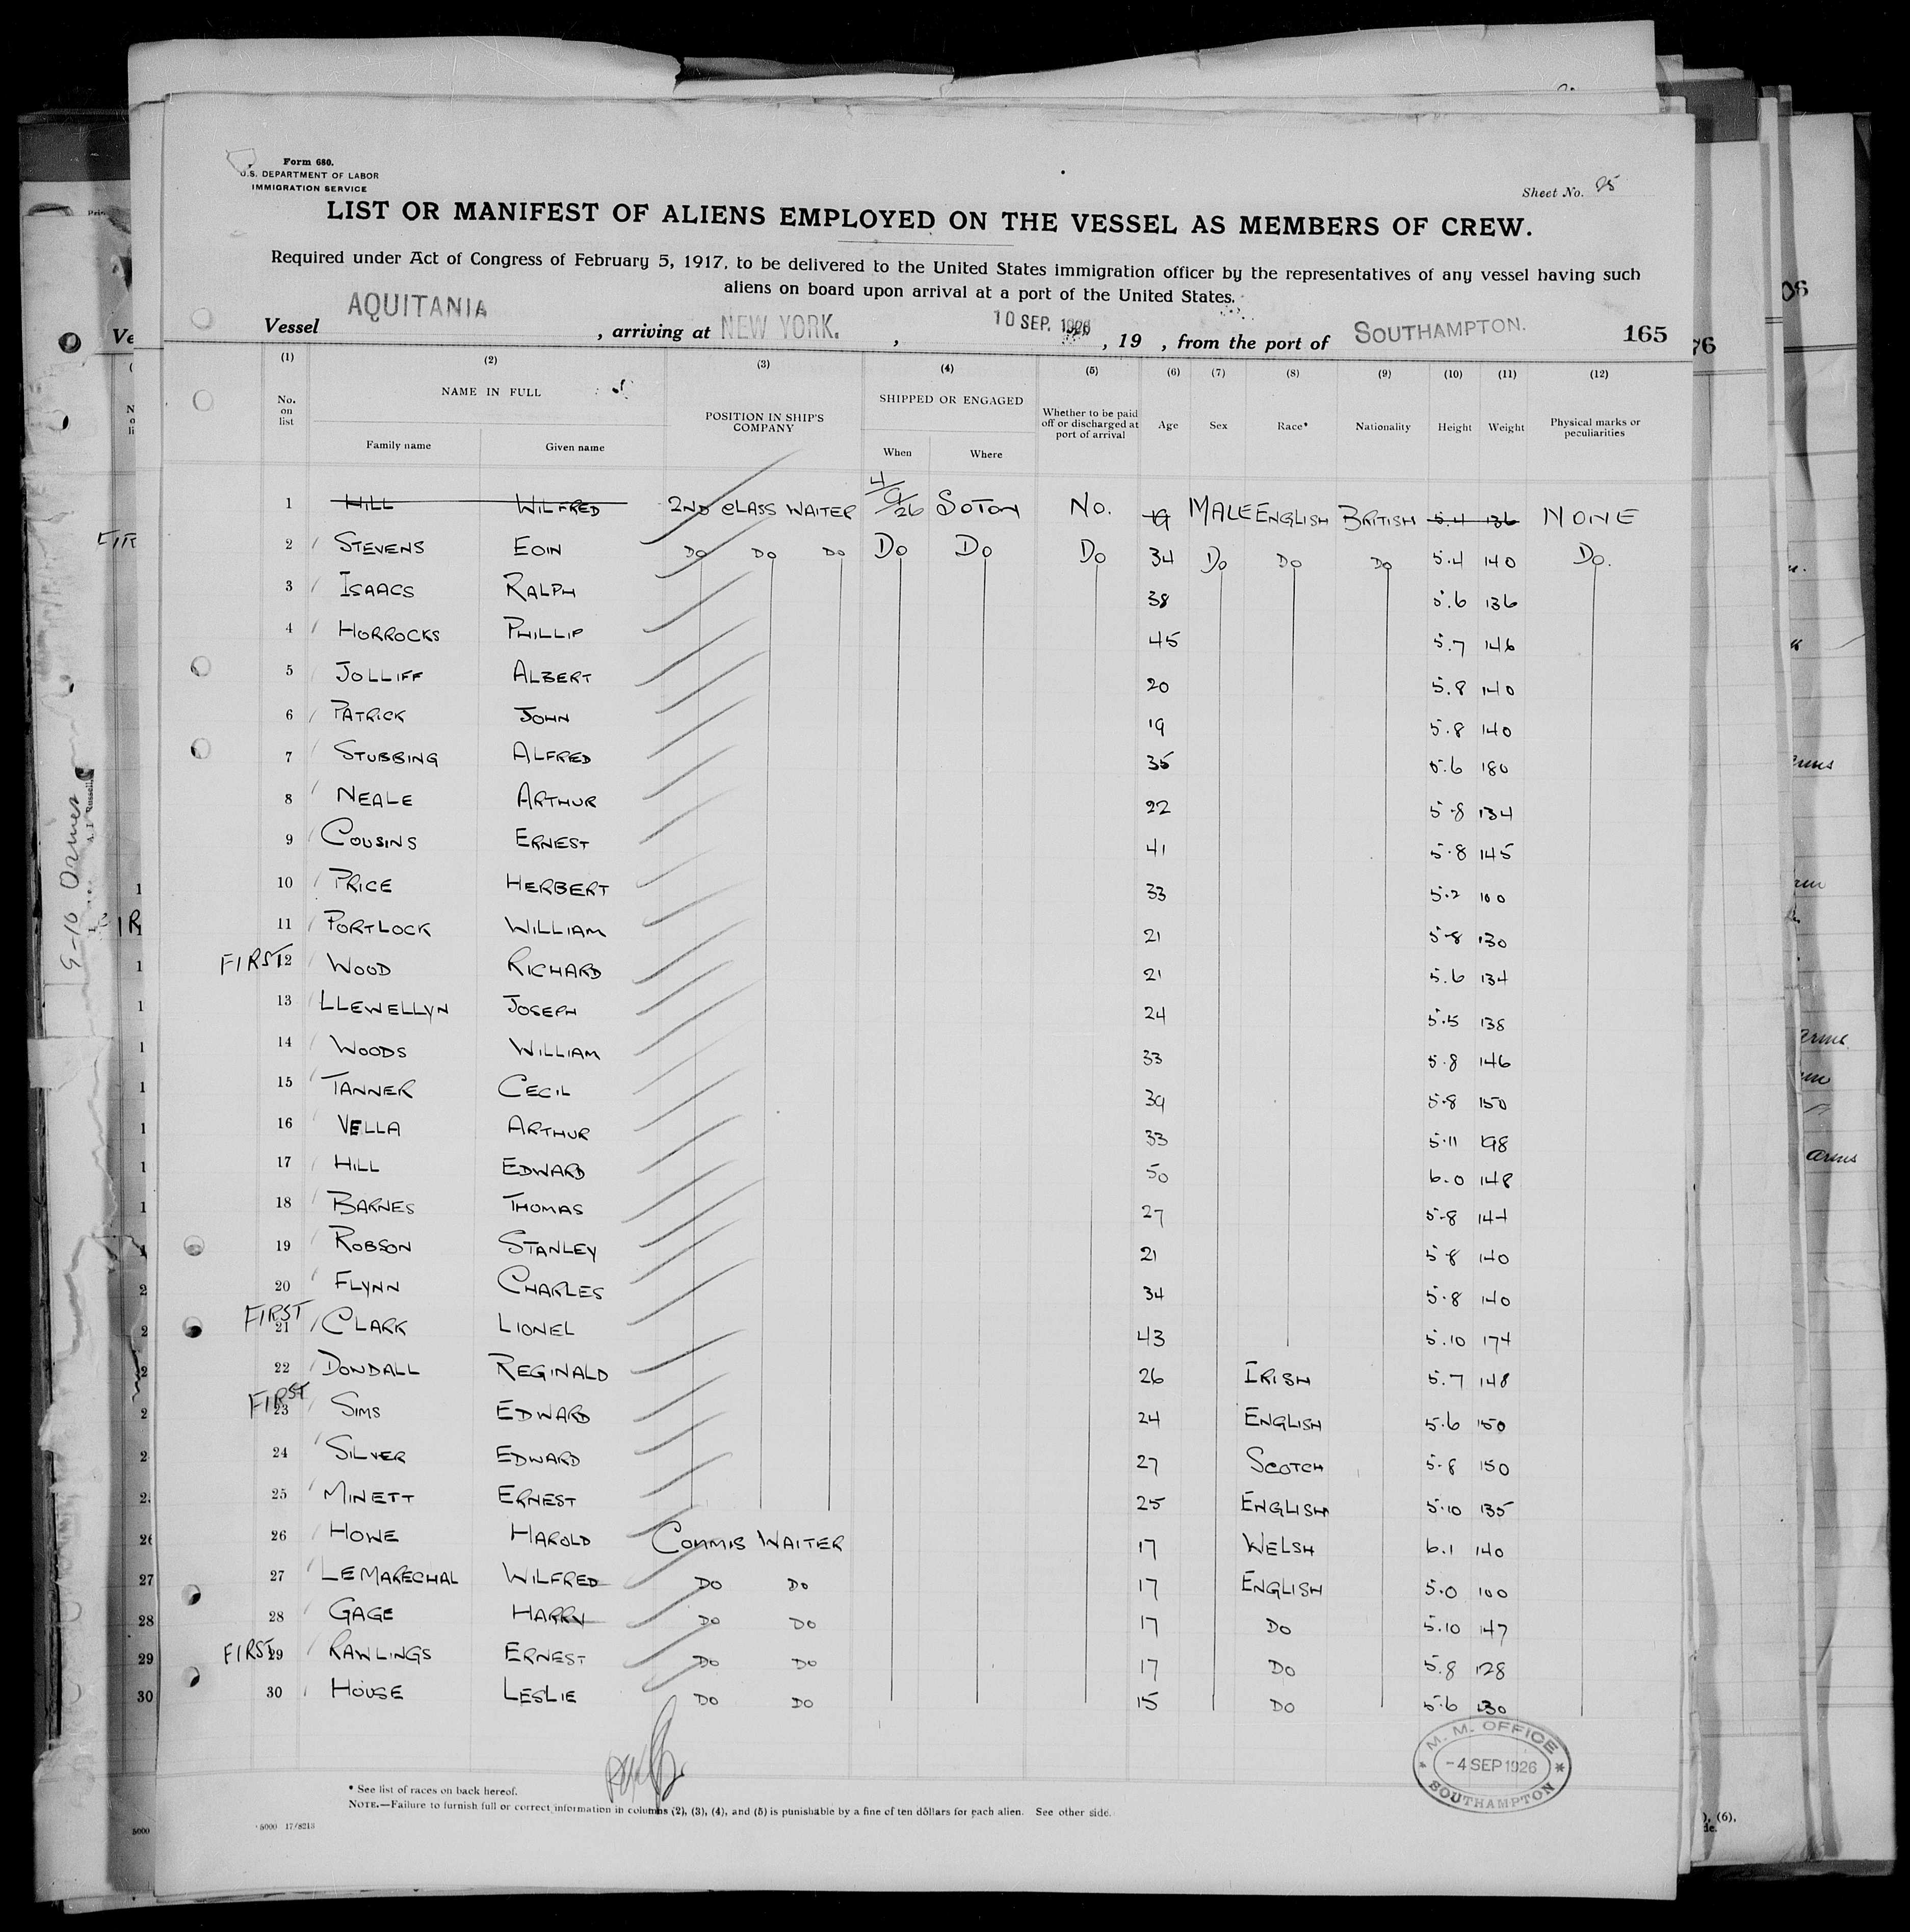 Form 680.
U.S. DEPARTMENT OF LABOR
IMMIGRATION SERVICE
Sheet No. 95
LIST OR MANIFEST OF ALIENS EMPLOYED ON THE VESSEL AS MEMBERS OF CREW.
Required under Act of Congress of February 5, 1917, to be delivered to the United States immigration officer by the representatives of any vessel having such
aliens on board upon arrival at a port of the United States.
Vessel AQUITANIA, arriving at NEW YORK. , 10 SEP. 1926, 19 , from the port of SOUTHAMPTON. 165
(1) (2) (3) (4) (5) (6) (7) (8) (9) (10) (11) (12)
No. on list NAME IN FULL POSITION IN SHIP'S COMPANY SHIPPED OR ENGAGED Whether to be paid off or discharged at port of arrival Age Sex Race* Nationality Height Weight Physical marks or peculiarities
Family name Given name When Where
1 HILL WILFRED 2ND CLASS WAITER 4/9/26 SOTON NO. 19 MALE ENGLISH BRITISH 5.4 136 NONE
2 STEVENS EOIN DO DO DO DO DO DO 34 DO DO DO 5.4 140 DO.
3 ISAACS RALPH 38 5.6 136
4 HORROCKS PHILLIP 45 5.7 146
5 JOLLIFF ALBERT 20 5.8 140
6 PATRICK JOHN 19 5.8 140
7 STUBBING ALFRED 35 5.6 180
8 NEALE ARTHUR 22 5.8 134
9 COUSINS ERNEST 41 5.8 145
10 PRICE HERBERT 33 5.2 100
11 PORTLOCK WILLIAM 21 5.8 130
FIRST 12 WOOD RICHARD 21 5.6 134
13 LLEWELLYN JOSEPH 24 5.5 138
14 WOODS WILLIAM 33 5.8 146
15 TANNER CECIL 39 5.8 150
16 VELLA ARTHUR 33 5.11 198
17 HILL EDWARD 50 6.0 148
18 BARNES THOMAS 27 5.8 144
19 ROBSON STANLEY 21 5.8 140
20 FLYNN CHARLES 34 5.8 140
FIRST 21 CLARK LIONEL 43 5.10 174
22 DOWDALL REGINALD 26 IRISH 5.7 148
FIRST 23 SIMS EDWARD 24 ENGLISH 5.6 150
24 SILVER EDWARD 27 SCOTCH 5.8 150
25 MINETT ERNEST 25 ENGLISH 5.10 135
26 HOWE HAROLD COMMIS WAITER 17 WELSH 6.1 140
27 LE MARECHAL WILFRED DO DO 17 ENGLISH 5.0 100
28 GAGE HARRY DO DO 17 DO 5.10 147
FIRST 29 RAWLINGS ERNEST DO DO 17 DO 5.8 128
30 HOUSE LESLIE DO DO 15 DO 5.6 130
M. M. OFFICE
-4 SEP 1926
SOUTHAMPTON
* See list of races on back hereof.
NOTE.—Failure to furnish full or correct information in columns (2), (3), (4), and (5) is punishable by a fine of ten dollars for each alien. See other side.
5000 17/8213